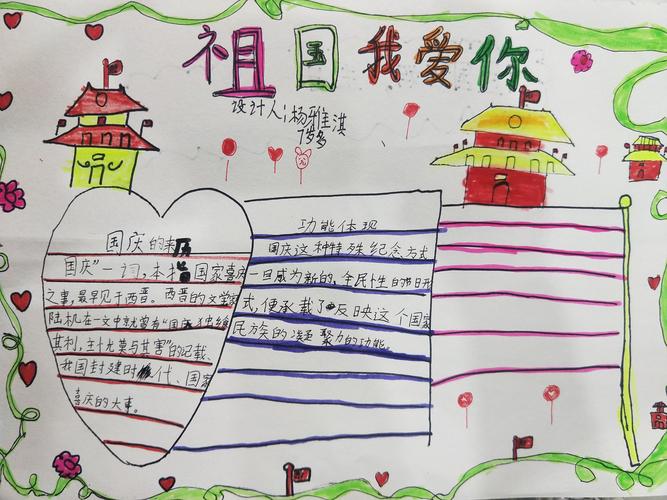 祖国我爱你
设计人:杨雅淇
7岁多
国庆的来历
国庆"一词,本指国家喜庆
之事,最早见于西晋。西晋的文学家
陆机在一文中就曾有"国庆独飨
其利,主忧莫与其害"的记载、
我国封建时代、国家
喜庆的大事。
功能体现
国庆这种特殊纪念方式
一旦成为新的、全民性的节日形
式,便承载了反映这个国家
民族的凝聚力的功能。